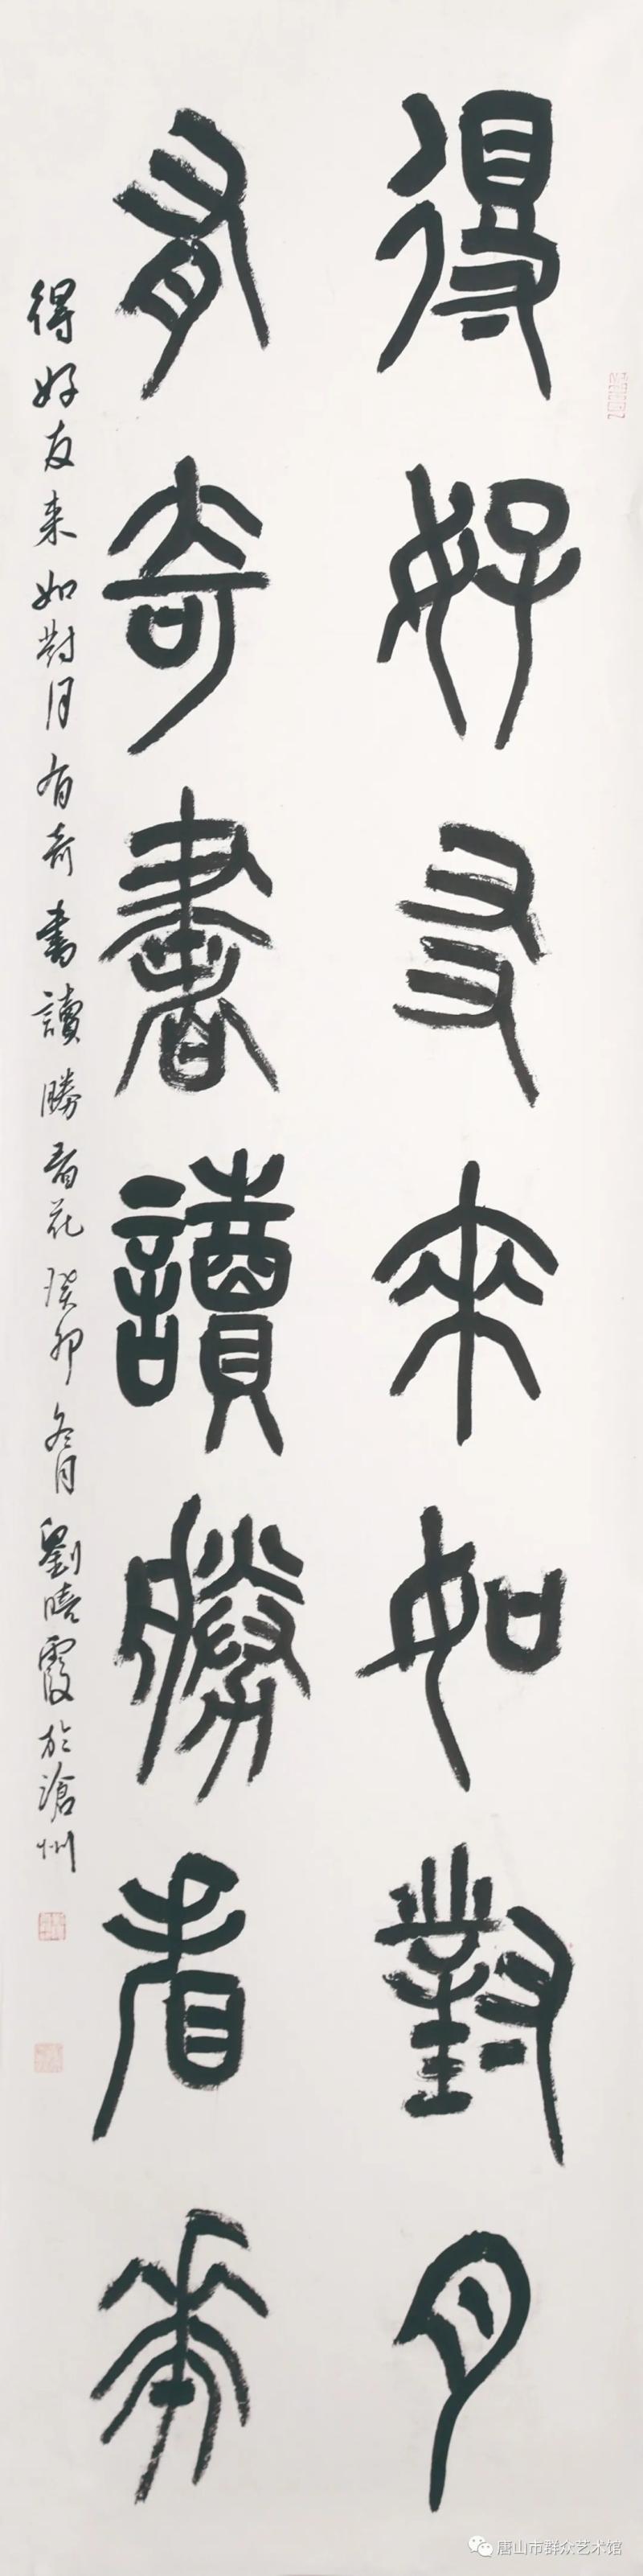 得好友来如對月
有奇書讀勝看華
得好友来如對月有奇書讀勝看花癸卯冬月劉曉霞於滄州
唐山市群众艺术馆